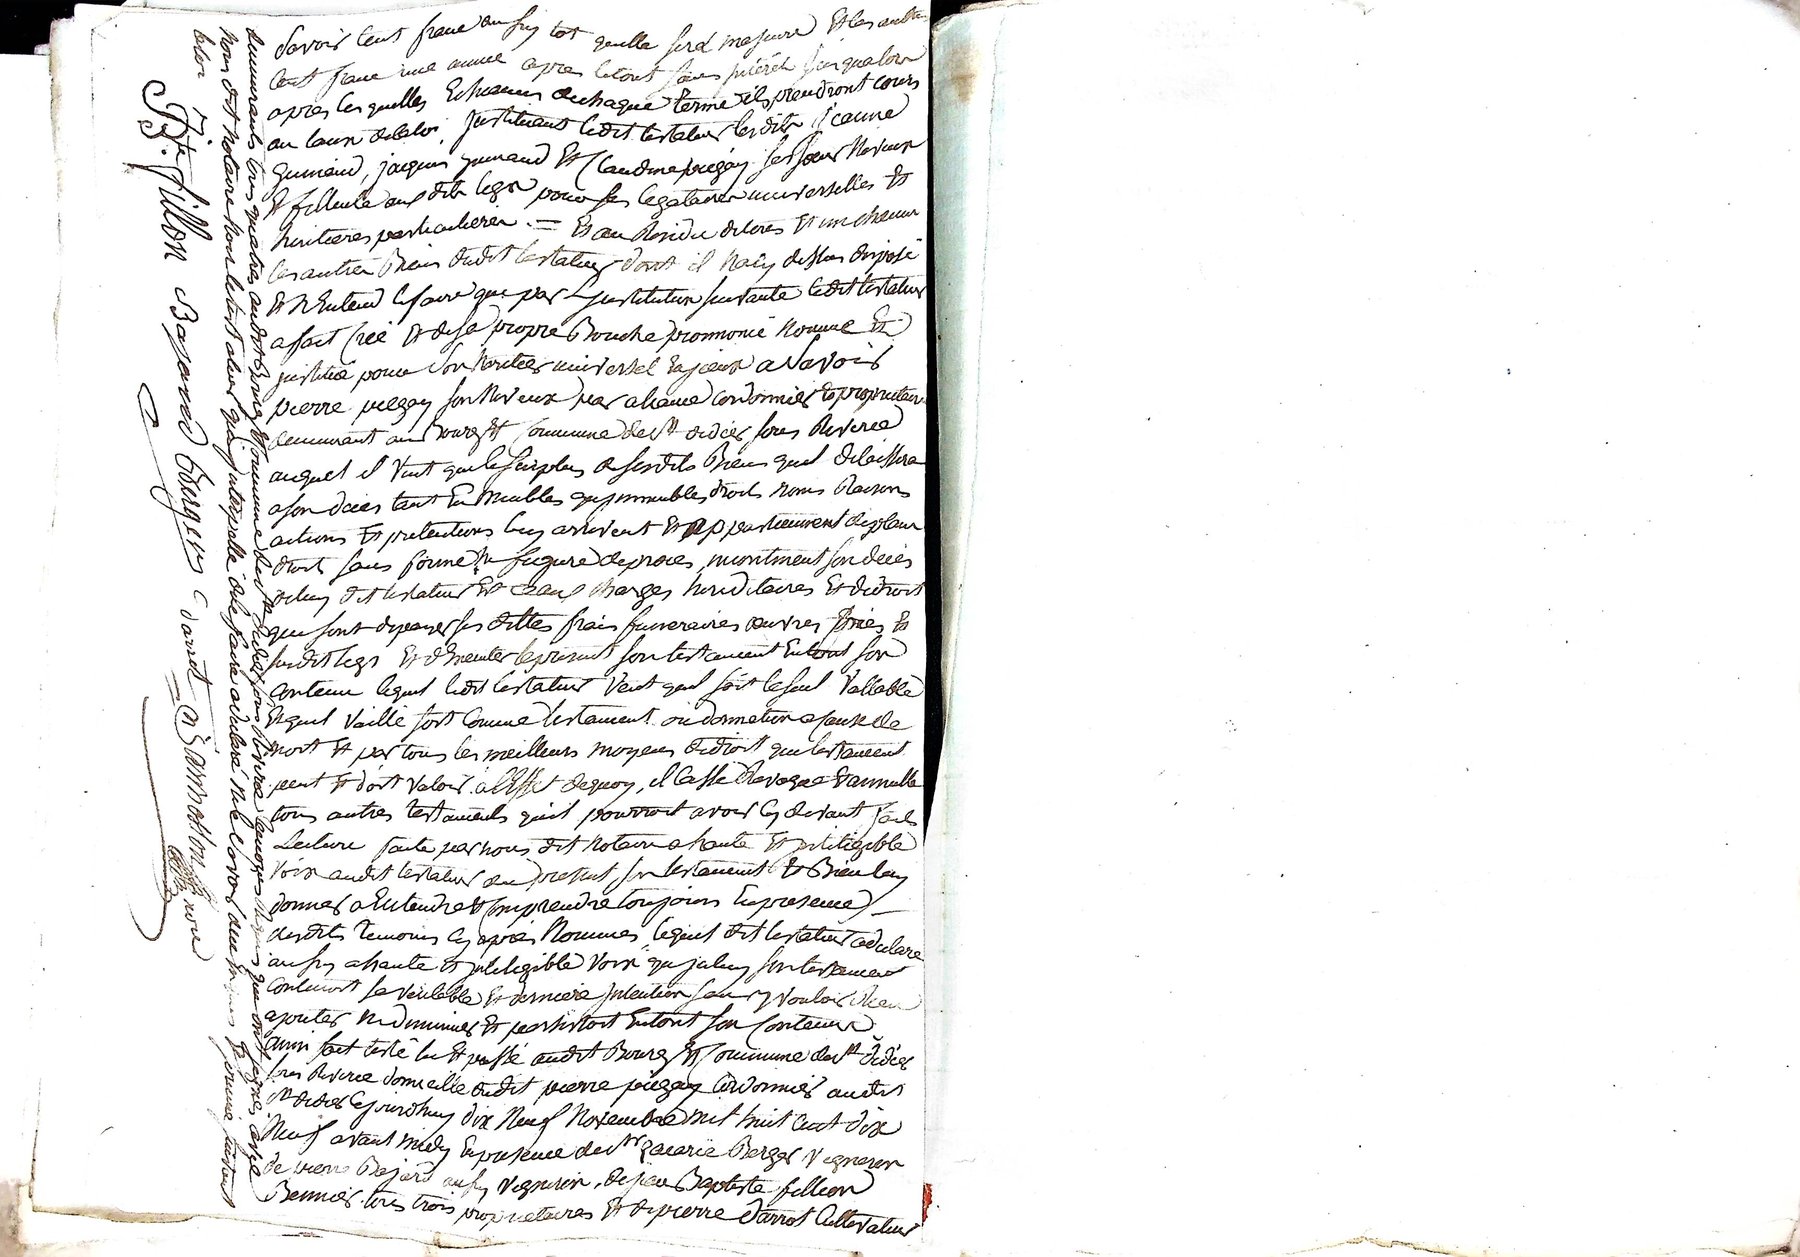 Savoir cent francs aussy tot quelle sera majeure Et les autres
cent francs une année apres letout sans intérêt jusqualors
apres lesquelles Echeances dechaque terme ils prendront cours
au taux delaloi. Instituant ledit testateur lesdits Jeanne
Guinand, jacques guinand Et Claudine piegay ses soeur Neveux
Et filleule aux dits legs pour ses legataires universelles Et
heritieres particulieres. = Et au Residu detous Et un chacun
les autres Biens dudit testateur dont il Nacy dessus disposé
Et N'Entend lefaire que par L'institution suivante ledit testateur
a fait Créé Et desa propre Bouche prononcé Nommé Et
institué pour son héritier universel Enjeux a Savoir
pierre piegay son Neveux par aliance cordonnier Et propriétaire
demeurant au Bourg Et Commune de St didier sous Riverie
auquel il Veut que le surplus desesdits Biens quil delaissera
ason décès tant En Meubles qu'immeubles droits noms Raisons
actions Et pretentions luy arrivent Et appartiennent deplein
droit sans forme ni figure deproces, incontinent son décès
deluy dit testateur Et caux charges héréditaires Et dedroit
qui sont depayer ses dettes frais funeraires oeuvres Pies Et
susdit legs Et d'Executer leprésent son testament Entout son
Contenu lequel ledit testateur Veut quil soit leseul Vallable
Et quil Vaille soit Comme testament ou donnation acause de
mort Et par tous les meilleurs moyens dedroit que testament
peut Et doit Valoir. a l'Effet dequoy, il Casse Revoque Et annulle
tous autres testaments quil pourroit avoir cy devant faits
Lecture faite par nous dit Notaire ahaute Et intelligible
Voix audit testateur du present son testament Et Bien luy
donner a Entendre Et Comprendre toujours Enpresence
desdits temoins cy apres Nommés, lequel dit testateur adeclaré
aussy ahaute Et intelligible Voix qu'jceluy son testament
Contenoit sa Véritable Et derniere intention sans y vouloir Rien
ajouter ni diminuer Et persistoit Entout son Contenu
ainsi fait testé lu Et passé audit Bourg Et Commune de St didier
sous Riverie domicille dudit pierre piegay Cordonnier audit
St didier Cejourdhuy dix Neuf Novembre mil huit cent dix
Neuf avant midy Enpresence de Sr zacarie Berger Vigneron
de pierre Bajard aussy Vigneron, de jean Baptiste fillion
Bennier. tous trois propriétaires Et depierre darrot Cultivateur
demeurants tous quatre audit Bourg Et Commune de St didier sous Riverie temoins Requis qui ont signés avec
Nous dit Notaire Non letestateur qui interpellé dele faire adeclaré ne le savoir
Bte fillon Bajard Berger darrot